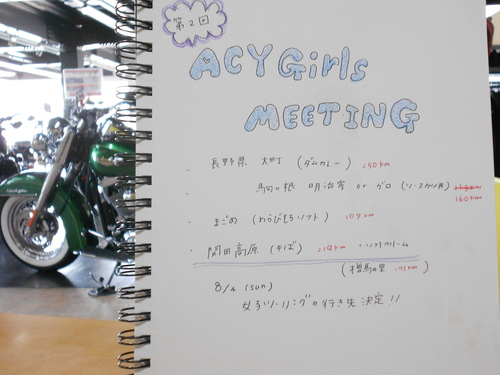 第2回
ACY Girls
MEETING
・長野県 大町 (ダムカレー) 150km
・駒ヶ根 明治亭 or ガロ (ソースカツ丼)
160km
・まごめ (わらびもちソフト) 107km
・開田高原 (そば) ・ソフトクリーム
8/4 (sun)
女子ツーリングの行き先 決定!!